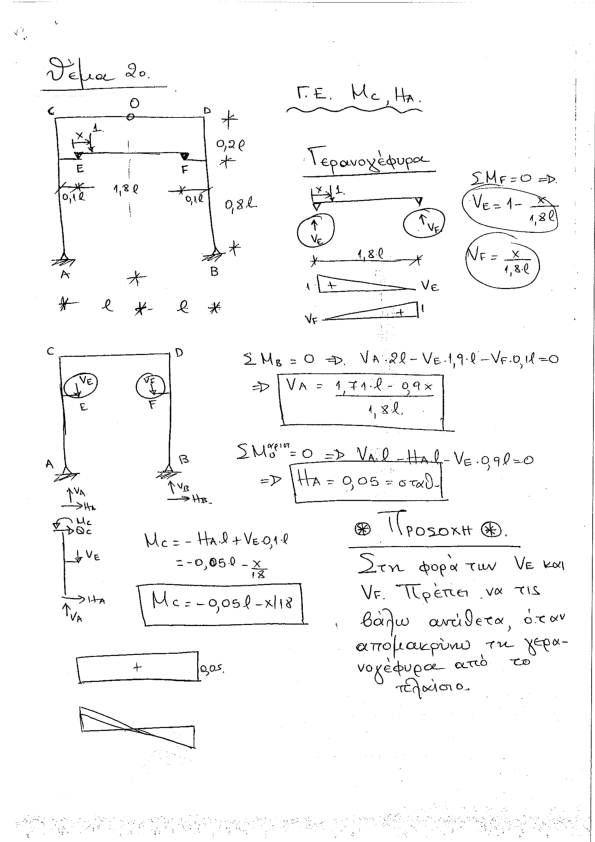 Θέμα 2ο.
Γ.Ε. Mc, HA.
C O D
x 1
E F
0,2l
0,1l 1,8l 0,1l
0,8l
A B
l l
Γερανογέφυρα
x 1
VE VF
1,8·l
1 + VE
VF + 1
ΣMF=0 ⇒
VE=1- x/1,8l
VF= x/1,8·l
C D
VE VF
E F
A B
VA VB
HA HB
ΣMB = 0 ⇒ VA·2l-VE·1,9·l-VF·0,1l=0
⇒ VA = 1,71·l-0,9x / 1,8l.
ΣMo^αριστ=0 ⇒ VA·l-HA·l-VE·0,9l=0
⇒ HA = 0,05 = σταθ.
Mc
Qc
VE
HA
VA
Mc=-HA·l+VE·0,1·l
=-0,05l - x/18
Mc=-0,05l-x/18
⊛ ΠΡΟΣΟΧΗ ⊛.
Στη φορά των VE και
VF. Πρέπει να τις
βάλω αντίθετα, όταν
απομακρύνω τη γερα-
νογέφυρα από το
πλαίσιο.
+ 0,05